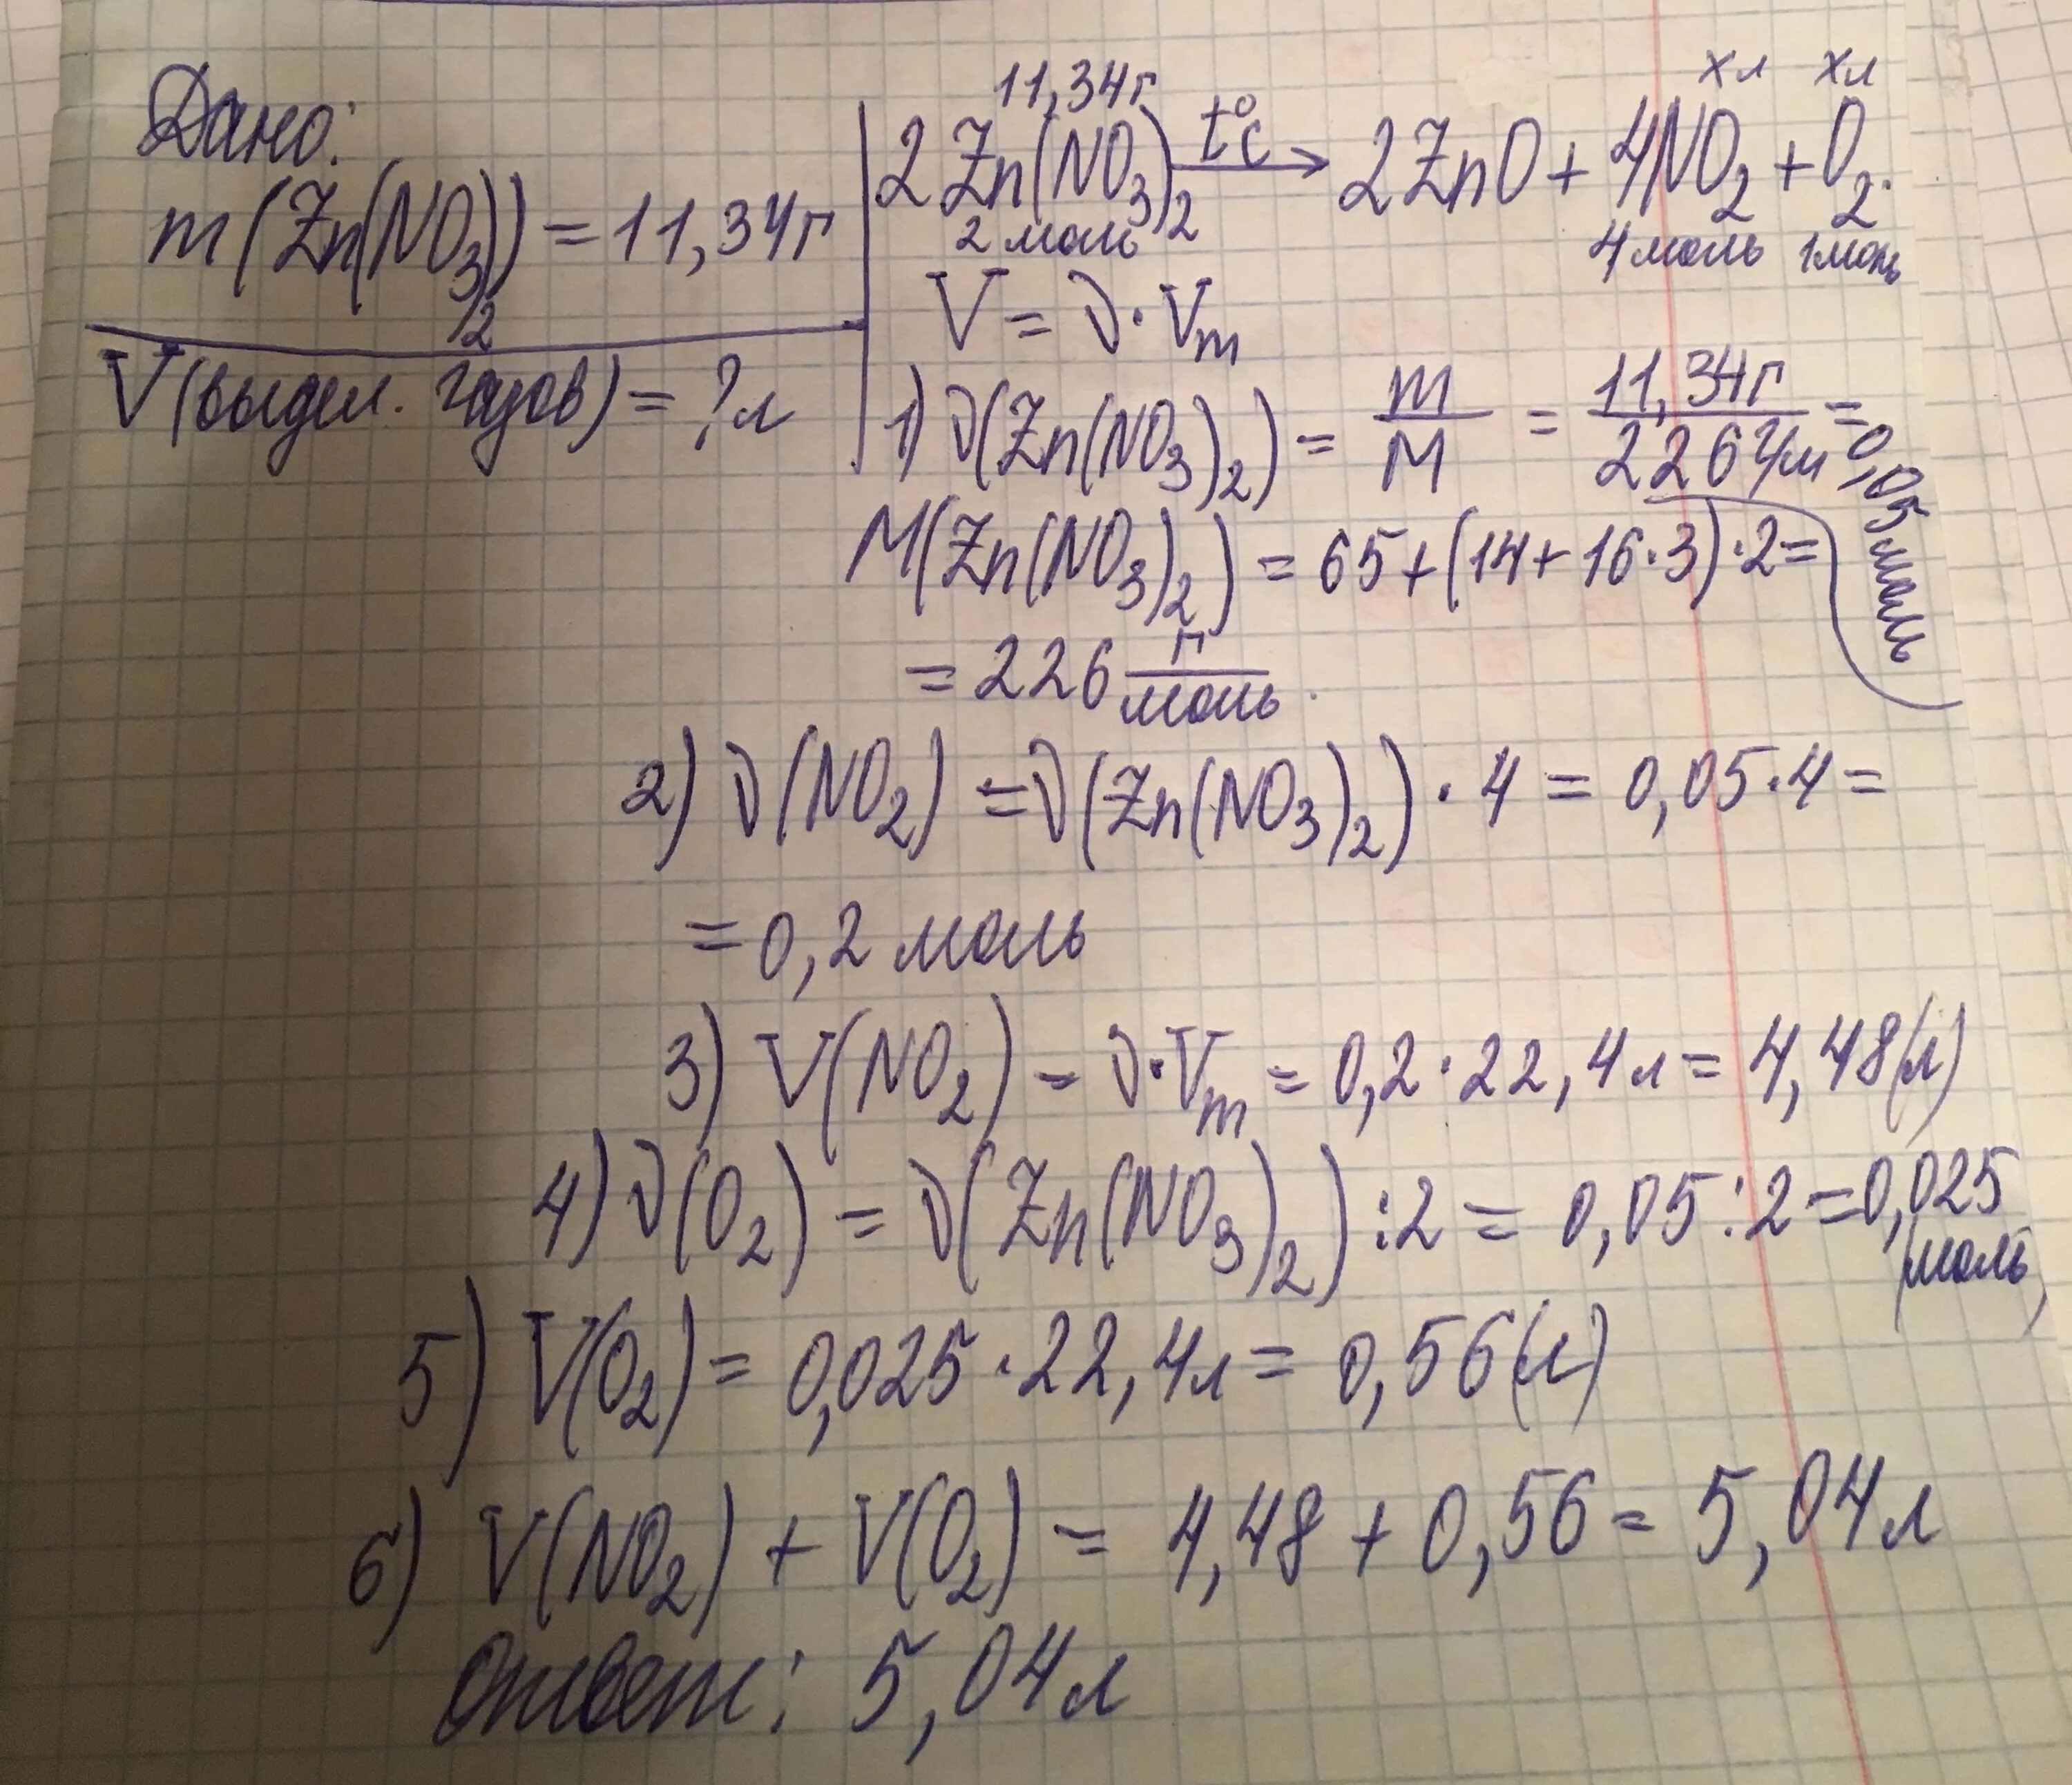 Дано:
m(Zn(NO₃)₂) = 11,34г
V(выдел. газов) = ? л
11,34г хл хл
2Zn(NO₃)₂ t°c → 2ZnO + 4NO₂ + O₂.
2 моль 4 моль 1 моль
V = ν · Vm
1) ν(Zn(NO₃)₂) = m/M = 11,34г/226 г/м = 0,05 моль
M(Zn(NO₃)₂) = 65 + (14 + 16·3)·2 =
= 226 г/моль.
2) ν(NO₂) = ν(Zn(NO₃)₂) · 4 = 0,05·4 =
= 0,2 моль
3) V(NO₂) = ν·Vm = 0,2·22,4л = 4,48(л)
4) ν(O₂) = ν(Zn(NO₃)₂) : 2 = 0,05 : 2 = 0,025 (моль)
5) V(O₂) = 0,025·22,4л = 0,56(л)
6) V(NO₂) + V(O₂) = 4,48 + 0,56 = 5,04л
Ответ: 5,04л